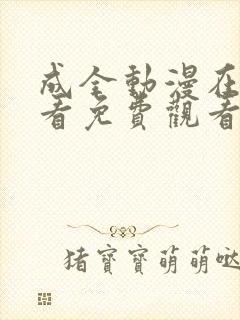 成全動漫在
看免費觀看
猪寶寶萌萌噠